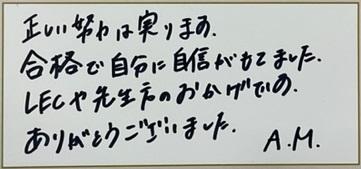 正しい努力は実ります.
合格で自分に自信がもてました.
LECや先生方のおかげです.
ありがとうございました.
A.M.